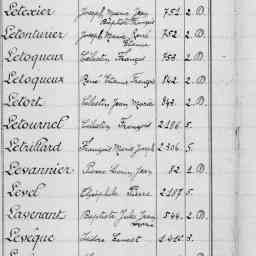 Letexier Joseph Marie Jean 751 2. D.
Baptiste François
Letonturier Joseph Marie René 752 2. D.
Etienne
Letoqueux Célestin François 753 2. D.
Letoqueux René Etienne François 842 2. D.
Letort Célestin Jean Marie 843 2. D.
Letournel Célestin François 2186 5.
Letrillard François Marie Joseph 2306 5.
Levannier Pierre Louis Jean 82 1. D.
Level Théophile Pierre 2187 5.
Lavenant Baptiste Jules Jean 544 2. D.
Levêque Isidore Ernest 1310 3.